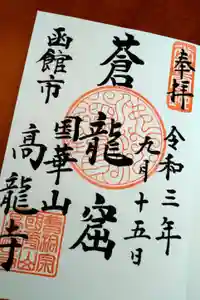 奉拝
令和三年
九月十五日
蒼龍窟
国華山
高龍寺
函館市